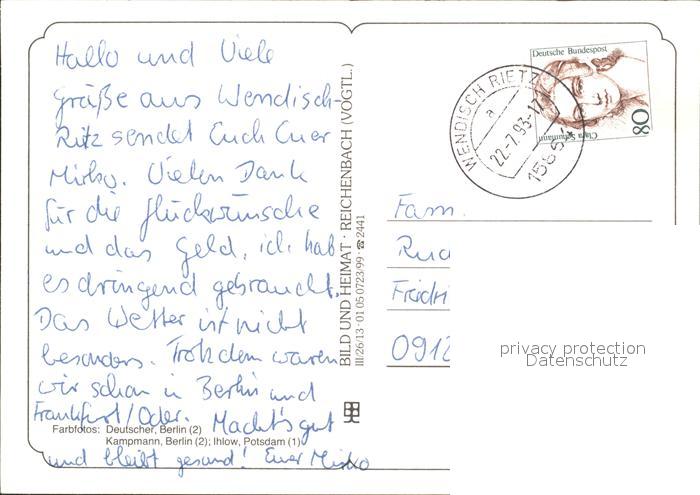 Hallo und Viele
Grüße aus Wendisch-
Ritz sendet Euch Euer
Mirko. Vielen Dank
für die Glückwünsche
und das Geld, ich hab
es dringend gebraucht.
Das Wetter ist nicht
besonders. Trotzdem waren
wir schon in Berlin und
Frankfurt/Oder. Macht's gut
und bleibt gesund! Euer Mirko
Farbfotos: Deutscher, Berlin (2)
Kampmann, Berlin (2); Ihlow, Potsdam (1)
BILD UND HEIMAT · REICHENBACH (VOGTL.)
III/26/13 · 01 05 0723/99 · ☎ 2441
Deutsche Bundespost
Clara Schumann
80
WENDISCH RIETZ
a
22.-7.93-17
15864
Fam.
Rud
Friedri
0912
privacy protection
Datenschutz